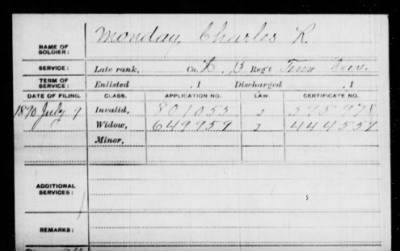 NAME OF SOLDIER: Monday, Charles R.
SERVICE: Late rank, Co. K. 13 Reg't Tenn
TERM OF SERVICE: Enlisted , 1 Discharged , 1
DATE OF FILING. CLASS. APPLICATION NO. LAW. CERTIFICATE NO.
1890 July 9 Invalid, 801053 2 595978
Widow, 649959 2 444559
Minor,
ADDITIONAL SERVICES:
REMARKS: